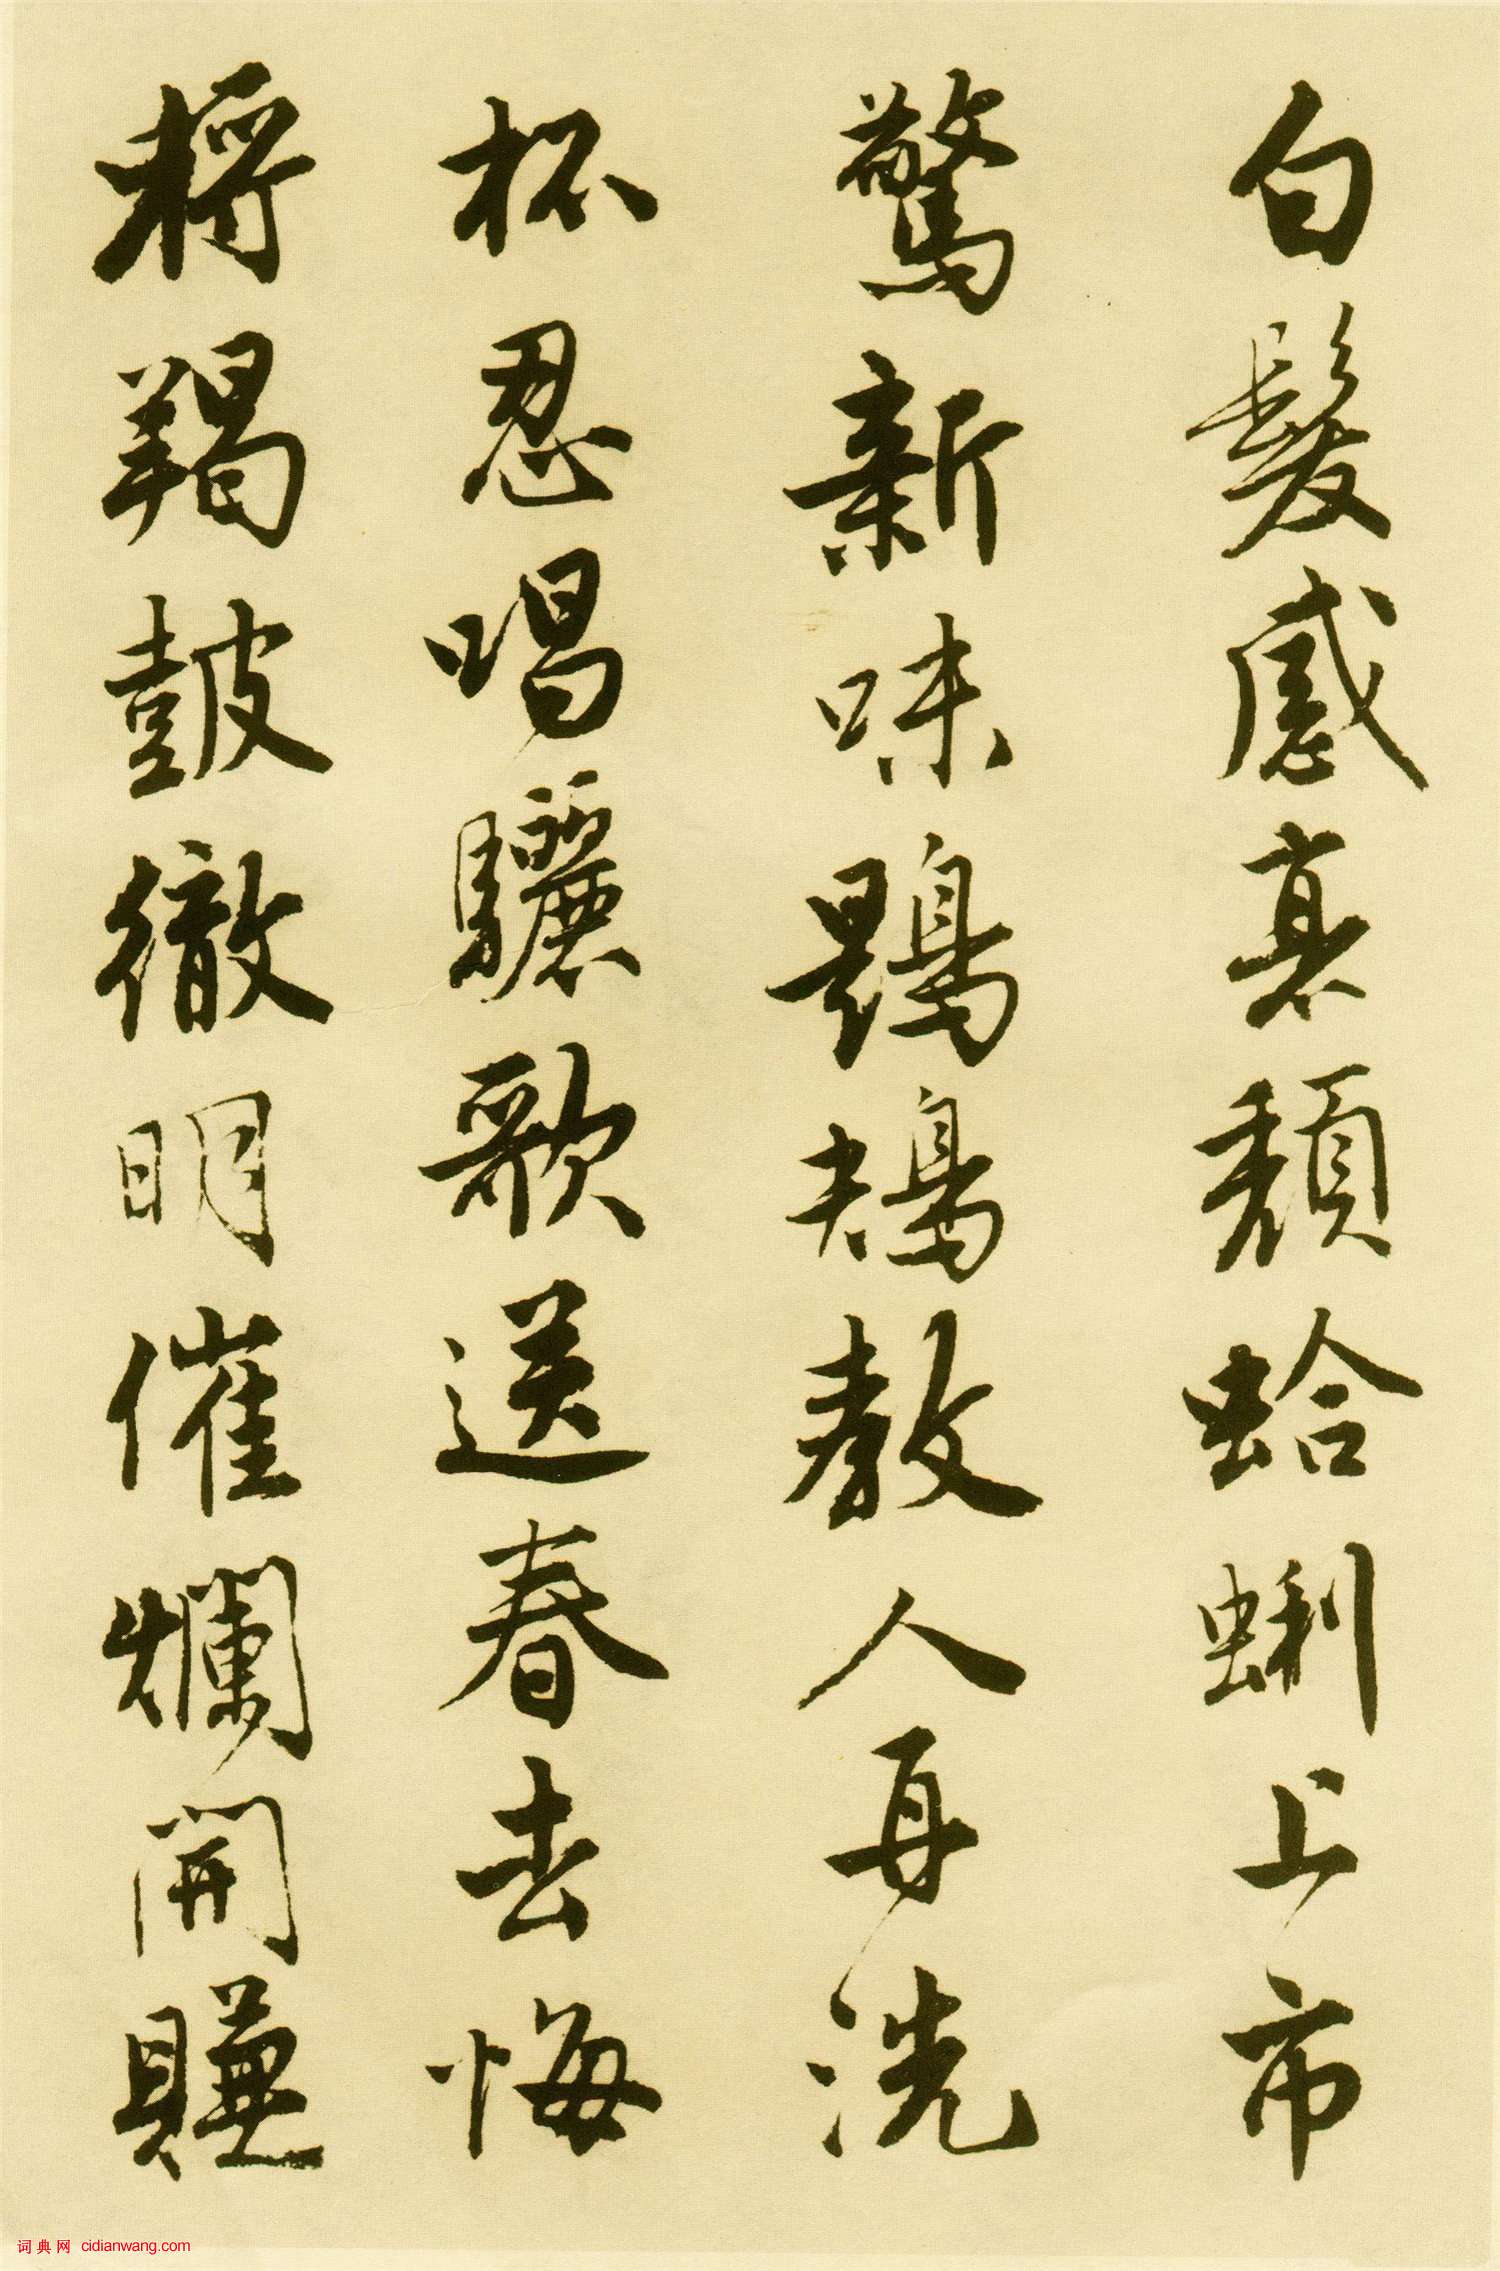 白髮感衰頹蛤蜊上市
驚新味鶗鴂教人再洗
杯忍唱驪歌送春去悔
將羯鼓徹明催爛開賺
词典网 cidianwang.com